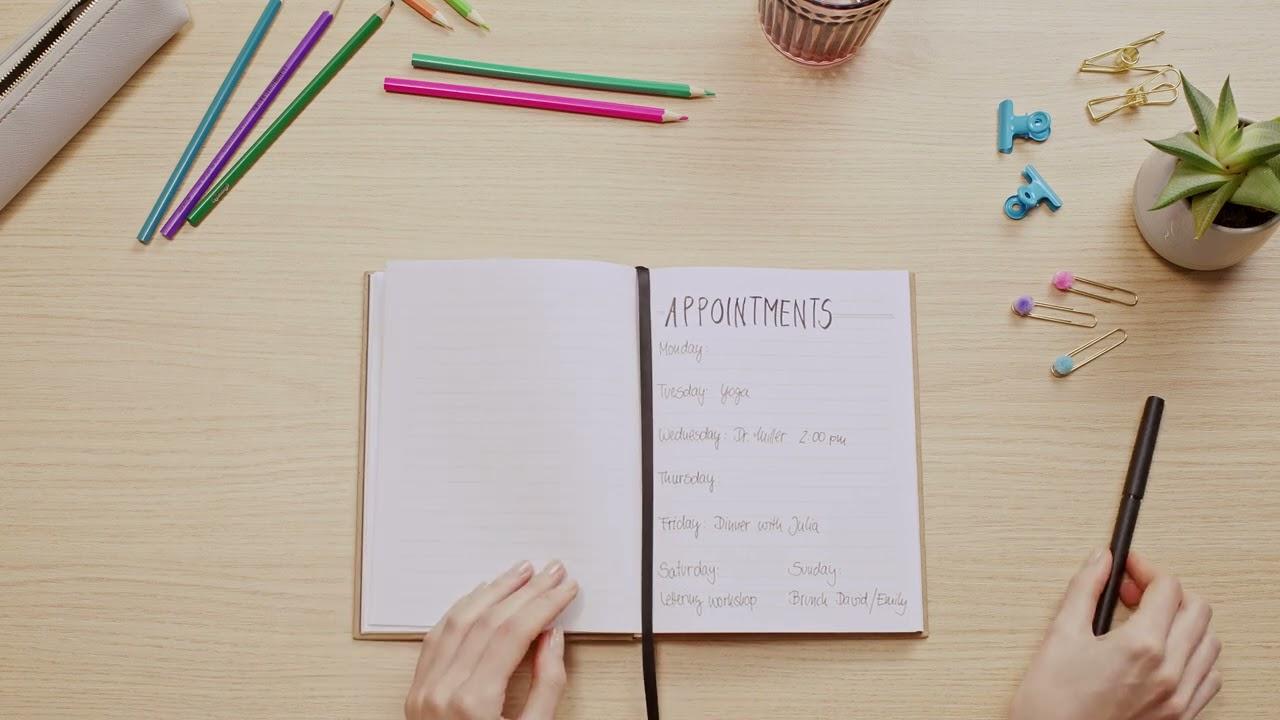 APPOINTMENTS
Monday:
Tuesday: Yoga
Wednesday: Dr. Miller 2:00 pm
Thursday:
Friday: Dinner with Julia
Saturday: Sunday:
Lettering workshop Brunch David/Emily